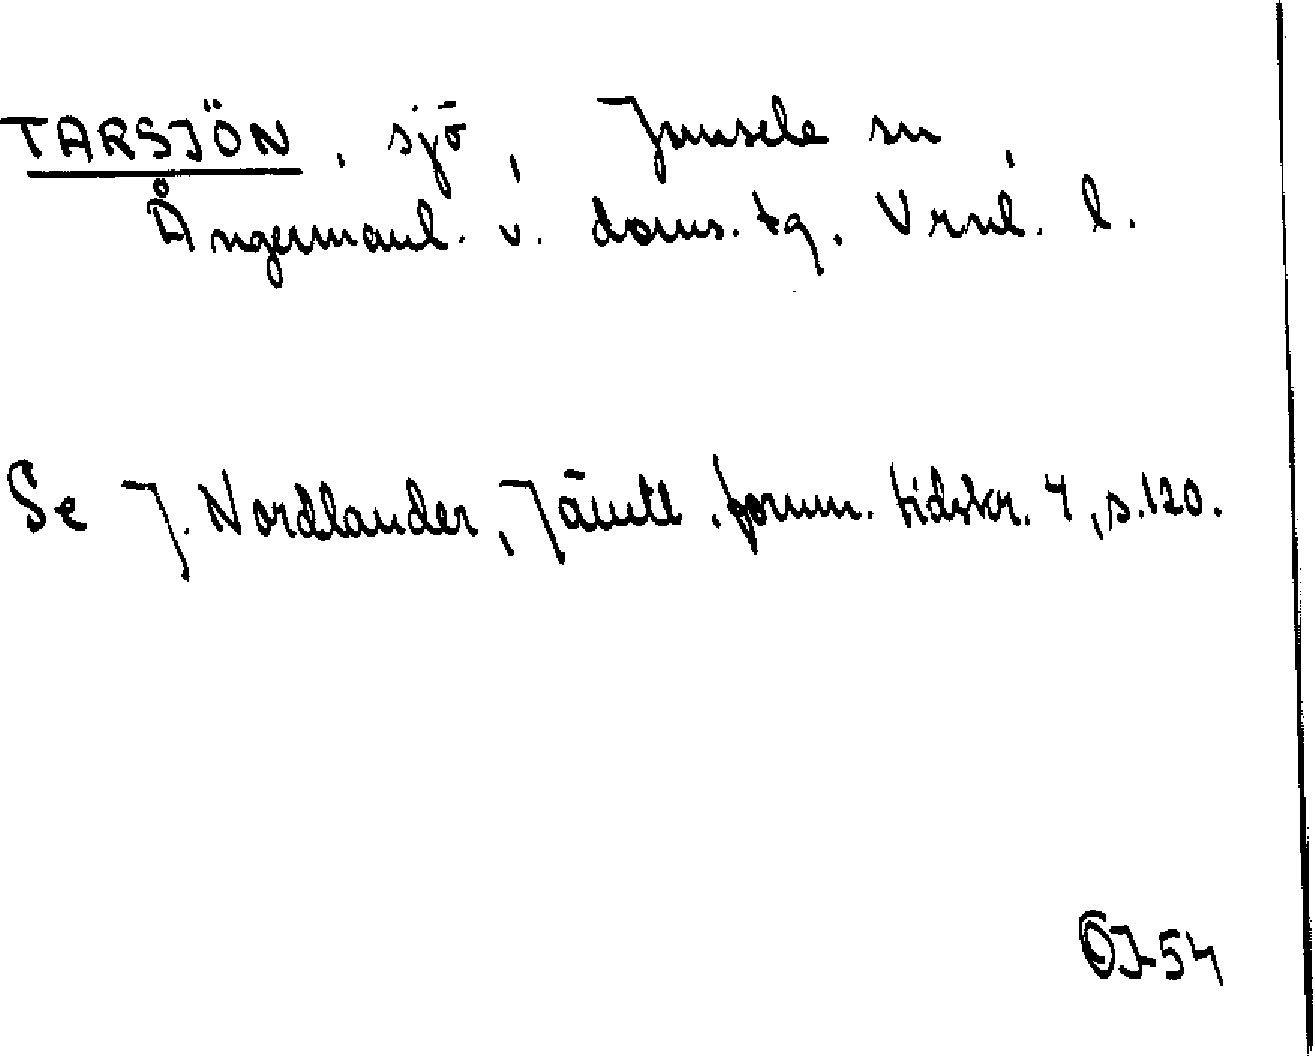 TARSJÖN, sjö, Junsele sn,
Ångermanl. v. doms. tg. Vrnl. l.
Se J. Nordlander, Jämtl. fornm. tidskr. 4, s. 120.
OJ-54